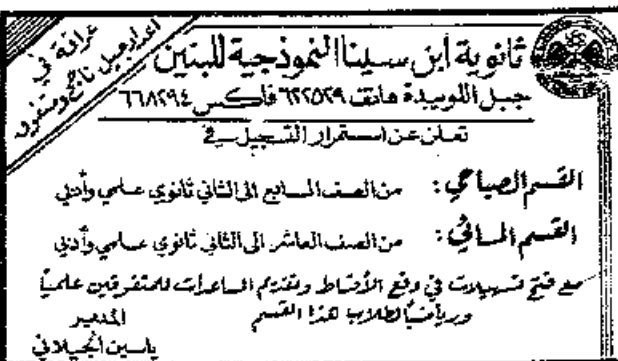 عراقة في
اعداد جيل ناجح ومتفوق
ثانوية ابن سينا النموذجية للبنين
جبل اللويبدة هاتف ٦٢٢٥٢٩ فاكس ٦٦٨٢٩٤
تعلن عن استمرار التسجيل في
القسم الصباحي: من الصف السابع الى الثاني ثانوي علمي وأدبي
القسم المسائي: من الصف العاشر الى الثاني ثانوي علمي وأدبي
مع فتح تسهيلات في دفع الأقساط وتقديم المساعدات للمتفوقين علمياً
ورياضياً لطلاب هذا القسم
المدير
ياسين الجيلاني